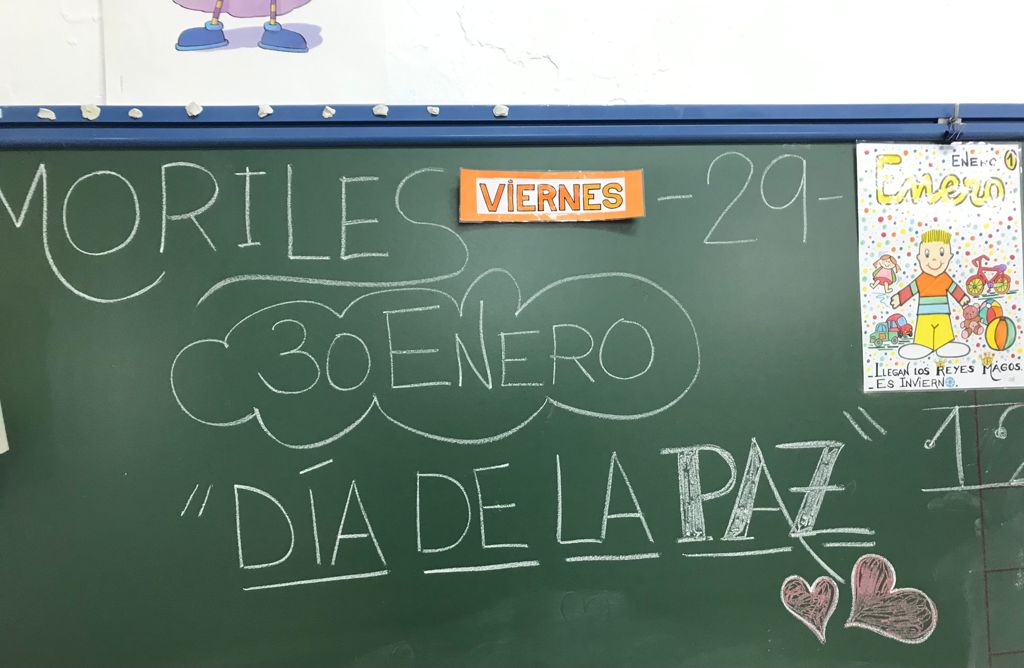 MORILES VIERNES -29-
30 ENERO
"DÍA DE LA PAZ"
ENERO 1
Enero
-LLEGAN LOS REYES MAGOS.
-ES INVIERNO.